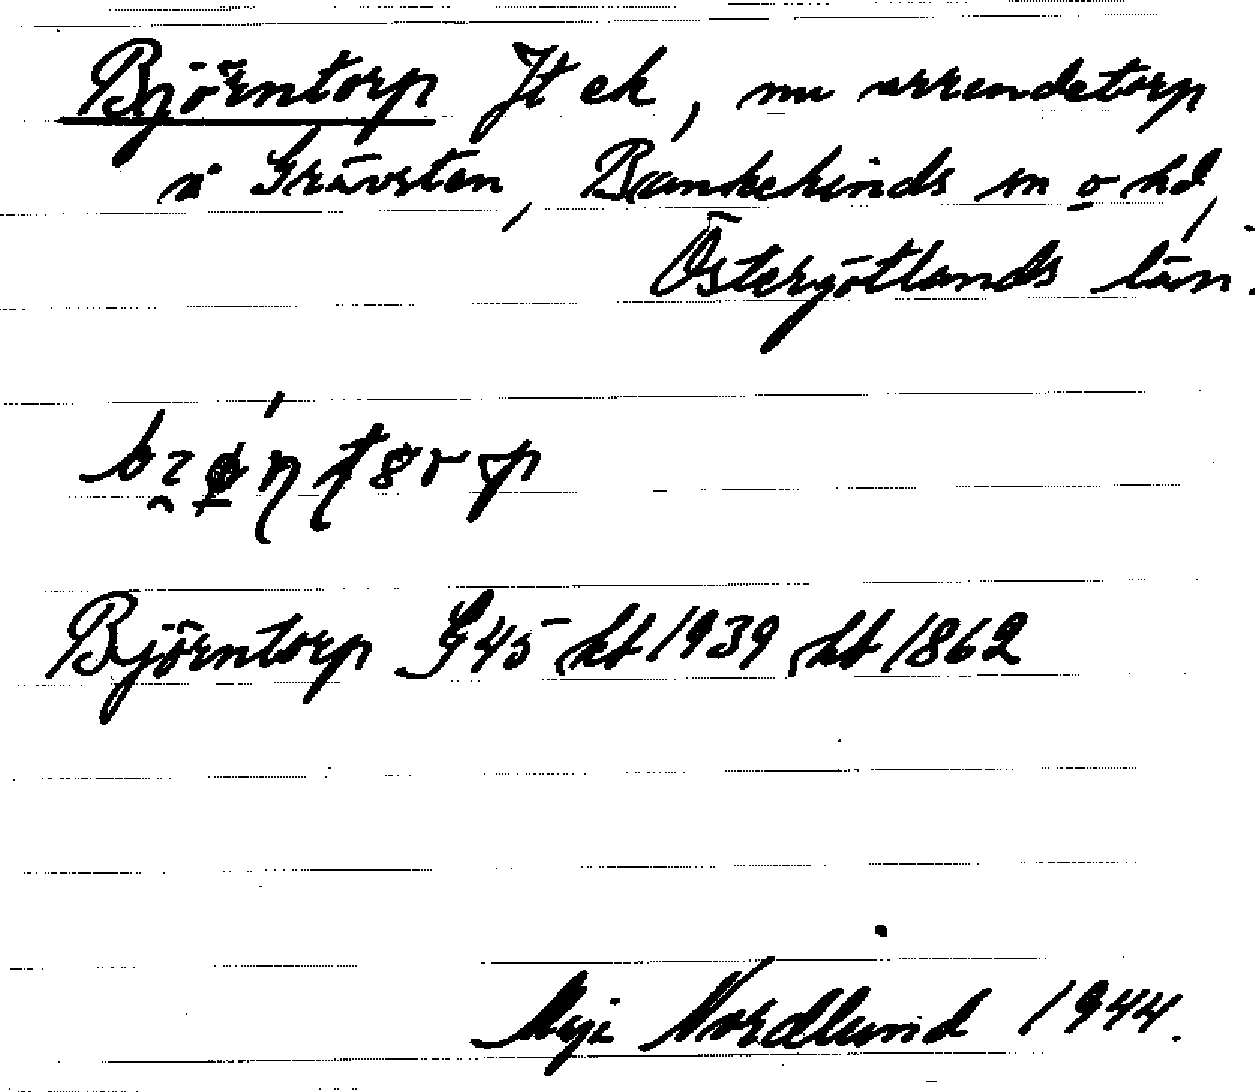 Björntorp Jt ek, nu arrendetorp
å Grävsten, Bankekinds sn o hd,
Östergötlands län.
Björntorp G45 kbl 1939 hbl 1862
Maja Nordlund 1944.